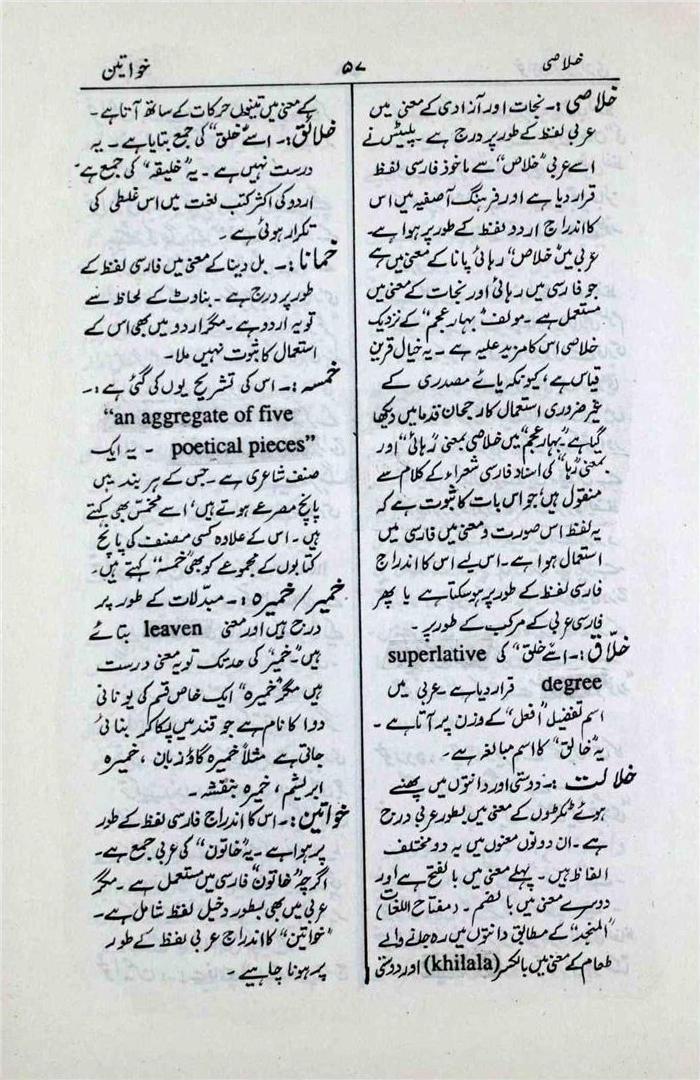 خلاصی
۵۷
خواتین
خلاصی :۔ نجات اور آزادی کے معنی میں
عربی لفظ کے طور پر درج ہے ۔ پلیٹس نے
اسے عربی ”خلاص“ سے ماخوذ فارسی لفظ
قرار دیا ہے اور فرہنگ آصفیہ میں اس
کا اندراج اردو لفظ کے طور پر ہوا ہے۔
عربی میں ”خلاص“ رہائی پانا کے معنی میں ہے
جو فارسی میں رہائی اور نجات کے معنی میں
مستعمل ہے ۔ مولف ”بہار عجم“ کے نزدیک
خلاصی اس کا مزید علیہ ہے ۔ یہ خیال قرین
قیاس ہے، کیونکہ یائے مصدری کے
غیر ضروری استعمال کا رجحان قدما میں دیکھا
گیا ہے ”بہار عجم“ میں خلاصی بمعنی ”رہائی“ اور
بمعنی ”رہا“ کی اسناد فارسی شعراء کے کلام سے
منقول ہیں، جو اس بات کا ثبوت ہے کہ
یہ لفظ اس صورت و معنی میں فارسی میں
استعمال ہوا ہے ۔ اس لیے اس کا اندراج
فارسی لفظ کے طور پر ہو سکتا ہے یا پھر
فارسی عربی کے مرکب کے طور پر ۔
خلّاق :۔ اسے ”خلق“ کی superlative
degree قرار دیا ہے ۔ عربی میں
اسم تفضیل ”افعل“ کے وزن پر آتا ہے ۔
یہ ”خالق“ کا اسم مبالغہ ہے ۔
خلالت :۔ دوستی اور دانتوں میں پھنسے
ہوئے ٹکڑوں کے معنی میں بطور عربی درج
ہے ۔ ان دونوں معنوں میں یہ دو مختلف
الفاظ ہیں ۔ پہلے معنی میں بالفتح ہے اور
دوسرے معنی میں بالضم ۔ (مفتاح اللغات)
”المنجد“ کے مطابق دانتوں میں رہ جانے والے
طعام کے معنی میں بالکسر (khilala) اور دوستی
کے معنی میں تینوں حرکات کے ساتھ آتا ہے ۔
خلائق :۔ اسے ”خلق“ کی جمع بتایا ہے ۔ یہ
درست نہیں ہے ۔ یہ ”خلیقہ“ کی جمع ہے
اردو کی اکثر کتب لغت میں اس غلطی کی
تکرار ہوئی ہے ۔
خمانا :۔ بل دینا کے معنی میں فارسی لفظ کے
طور پر درج ہے ۔ بناوٹ کے لحاظ سے
تو یہ اردو ہے ۔ مگر اردو میں بھی اس کے
استعمال کا ثبوت نہیں ملا۔
خمسہ :۔ اس کی تشریح یوں کی گئی ہے :۔
“an aggregate of five
poetical pieces” ۔ یہ ایک
صنف شاعری ہے ۔ جس کے ہر بند میں
پانچ مصرعے ہوتے ہیں، اسے مخمس بھی کہتے
ہیں ۔ اس کے علاوہ کسی مصنف کی پانچ
کتابوں کے مجموعے کو بھی ”خمسہ“ کہتے ہیں۔
خمیر / خمیرہ :۔ مبدلات کے طور پر
درج ہیں اور معنی leaven بتائے
ہیں ۔ ”خمیر“ کی حد تک تو یہ معنی درست
ہیں مگر ”خمیرہ“ ایک خاص قسم کی یونانی
دوا کا نام ہے جو قند میں پکا کر بنائی
جاتی ہے مثلاً خمیرہ گاؤزبان ، خمیرہ
ابریشم ، خمیرہ بنفشہ ۔
خواتین :۔ اس کا اندراج فارسی لفظ کے طور
پر ہوا ہے ۔ یہ ”خاتون“ کی عربی جمع ہے۔
اگرچہ ”خاتون“ فارسی میں مستعمل ہے ۔ مگر
عربی میں بھی بطور دخیل لفظ شامل ہے ۔
”خواتین“ کا اندراج عربی لفظ کے طور
پر ہونا چاہیے ۔